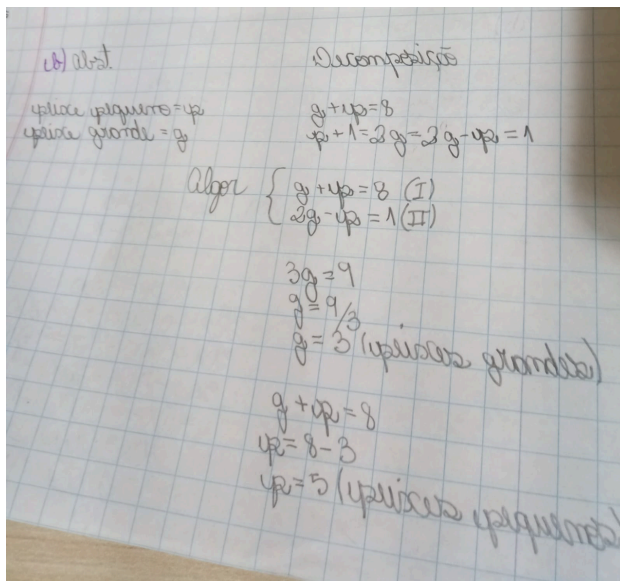 b) abst.
Decomposição
peixe pequeno = p
peixe grande = g
g + p = 8
p + 1 = 2g = 2g - p = 1
Algor
g + p = 8 (I)
2g - p = 1 (II)
3g = 9
g = 9/3
g = 3 (peixes grandes)
g + p = 8
p = 8 - 3
p = 5 (peixes pequenos)